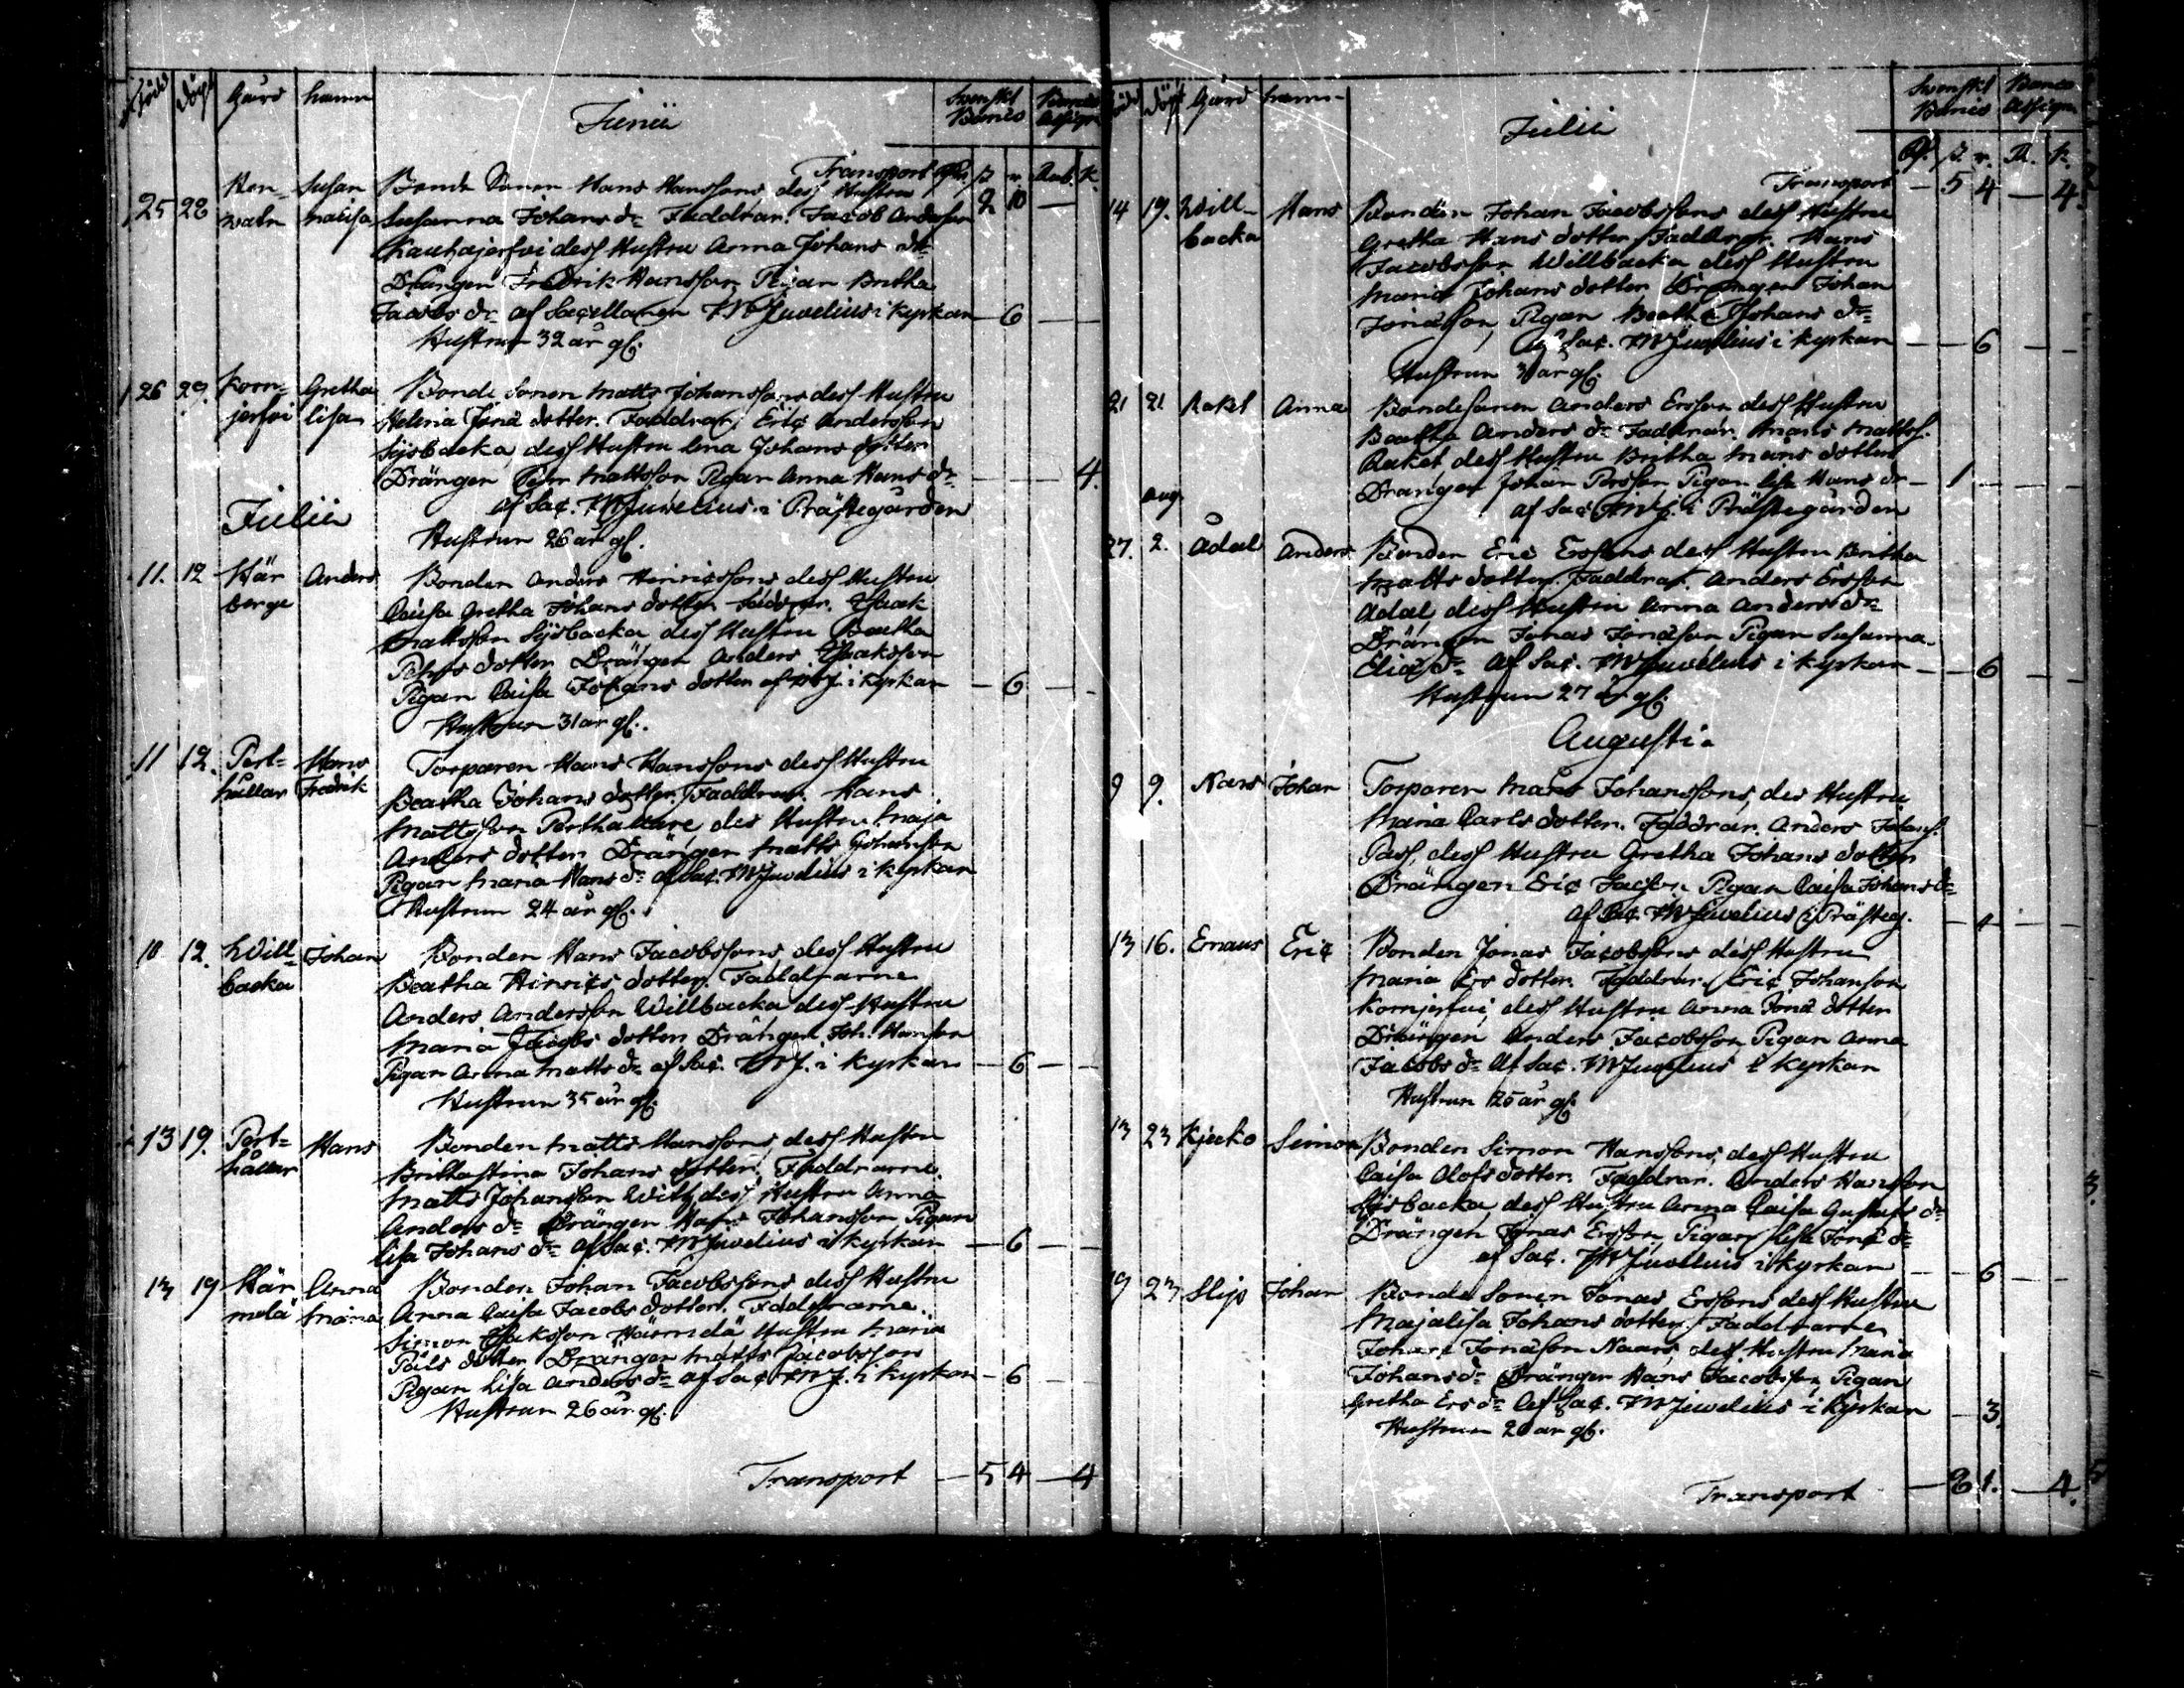 Född Döpt Gård namn Junii Svenskt Banco Banco Assign
Transport 2 10 —
25 28 Susan Bonde Sonen Hans Hanssons, dess Hustru
naCajsa Susanna Johans dr Faddrar. Jacob Andersson
Kauhajerfvi dess Hustru Anna Johans dr
Drängen Fredrik Hansson, Pigan Britha
Jacobs dr af Sacellanen JWJuvelius i Kyrkan — 6 —
Hustrun 32 år gl.
26 29. Korn- Gretha Bonde Sonen Matts Johanssons dess Hustru
jerfvi lisa Helena Jona dotter. Faddrar, Eric Andersson
Sijsbacka, dess Hustru lena Johans dotter
Drängen Pehr Mattsson Pigan Anna Hans dr — — 4.
af Sac. JWJuvelius i Prästegården
Julii
Hustrun 26 år gl.
11. 12 Här Anders Bonden Anders Hinricssons dess Hustru
berge Caisa Gretha Johans dotter Faddrar. Isaak
Mattsson Sijsbacka dess Hustru Beatha
Pehrs dotter Drängen Anders Isaaksson
Pigan Caisa Johans dotter af JWJ. i Kyrkan — 6 —
Hustrun 31 år gl.
11 12. Pert- Hans Torparen Hans Hanssons dess Hustru
hållar Fredrik Beatha Johans dotter. Faddrar. Hans
Mattsson Perthållare des Hustru Maja
Anders dotter Drängen Matts Johansson
Pigan Maria Hans dr af Sac. JWJuvelius i Kyrkan
Hustrun 24 år gl.
10 12. Will- Johan Bonden Hans Jacobssons dess Hustru
backa Beatha Hinrics dotter. Faddrarne
Anders Andersson Willbacka dess Hustru
Maria Jacobs dotter Drängen Joh. Hansson
Pigan Anna Matts dr af Sac. JWJ. i Kyrkan — 6 —
Hustrun 35 år gl.
13 19. Pert- Hans Bonden Matts Hanssons, dess Hustru
hållar Brithastina Johans dotter, Faddrarne.
Matts Johansson Witz dess Hustru Anna
Anders dr Drängen Hans Johansson Pigan
Lisa Johans dr af Sac. JWJuvelius i Kyrkan — 6 —
13 19 Här Anna Bonden Johan Jacobssons dess Hustru
melä Maria Anna Caisa Jacobs dotter. Faddrarne.
Simon Isaksson Härmelä Hustru Maria
Påls dotter Drängen Matts Jacobsson
Pigan Lisa Anders dr af Sac JWJ. i Kyrkan — 6 —
Hustrun 26 år gl.
Transport — 5 4 — 4
Döpt Gård namn Julii Svenskt Banco Banco Assign
Transport — 5 4 — 4.
14 19. Will- Hans Bonden Johan Jacobssons dess Hustru
backa Gretha Hans dotter, Faddrar. Hans
Jacobsson Willbacka dess Hustru
Maria Johans dotter Drängen Johan
Jonasson, Pigan Beatha Johans dr
af Sac. JWJuvelius i Kyrkan — — 6 — —
Hustrun 31 år gl.
21 21. Anna Bondesonen Anders Ersson dess Hustru
Beatha Anders dr Faddrar. Mans Mattss.
dess Hustru Britha Mans dotter
Drängen Johan Persson Pigan lisa Hans dr — 1 — —
af Sac JWJ. i Prästegården
aug.
27. 2. Ådal Anders Bonden Eric Erssons dess Hustru Britha
Matts dotter. Faddrar. Anders Ersson
Ådal, dess Hustru Anna Anders dr
Drängen Jonas Jonasson Pigan Susanna
Elias dr af Sac. JWJuvelius i Kyrkan — — 6 — —
Hustrun 27 år gl.
Augusti.
9 9. Nars Johan Torparen Måns Johanssons, des Hustru
Maria Carls dotter. Faddrar. Anders Johanss.
Pass, dess Hustru Gretha Johans dotter
Drängen Eric Pigan Caisa Johans dr
af Sac. JWJuvelius i Prästeg.
13 16. Emaus Eric Bonden Jonas Jacobssons dess Hustru
Maria Ers dotter. Faddrar. Eric Johansson
Kornjerfvi, dess Hustru Anna Jona dotter
Drängen Anders Jacobsson, Pigan Anna
Jacobs dr af Sac. JWJuvelius i Kyrkan
Hustrun 25 år gl.
13 23 Simon Bonden Simon Hanssons, dess Hustru
Caisa Olofs dotter. Faddrar. Anders Hansson
Sijsbacka, dess Hustru Anna Caisa Gustafs dr
Drängen Jonas Ersson, Pigan Lisa Jona dr
af Sac. JWJuvelius i Kyrkan — — 6 — —
19 23 Slijs Johan Bonde Sonen Jonas Erssons dess Hustru
Majalisa Johans dotter. Faddrarne
Johan Jonasson Naars, dess Hustru Maria
Johans dr Drängen Hans Jacobsson, Pigan
Gretha Ers dr af Sac. JWJuvelius i Kyrkan — 3.
Hustrun 20 år gl.
Transport — 8 1. — 4.